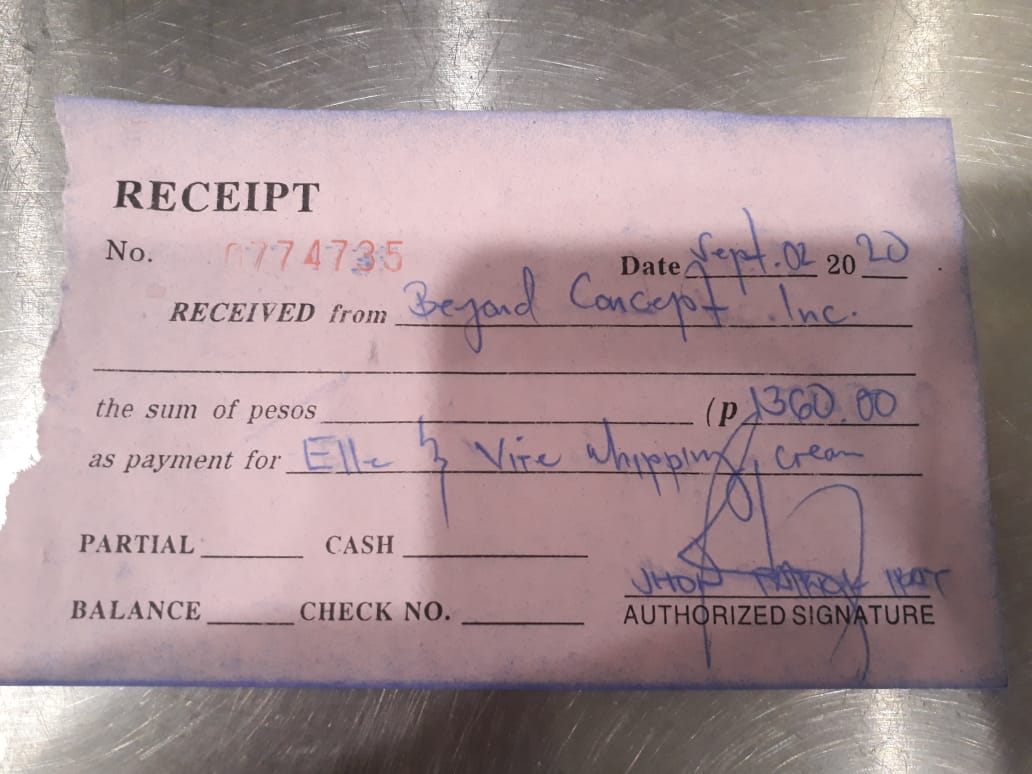 RECEIPT
No. 0774735
Date Sept. 02 20 20
RECEIVED from Beyond Concept . Inc.
the sum of pesos (p 1360.00
as payment for Elle & Vire whipping cream
PARTIAL CASH
BALANCE CHECK NO.
AUTHORIZED SIGNATURE